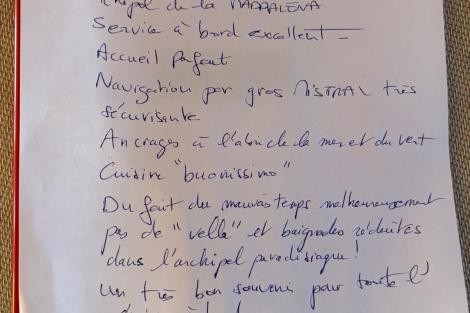 de la MADDALENA
Service à bord excellent –
Accueil parfait
Navigation par gros MISTRAL très
sécurisante
Ancrages à l'abri de la mer et du vent
Cuisine "buonissimo"
Du fait du mauvais temps malheureusement
pas de "vella" et baignades réduites
dans l'archipel paradisiaque !
Un très bon souvenir pour toute l'